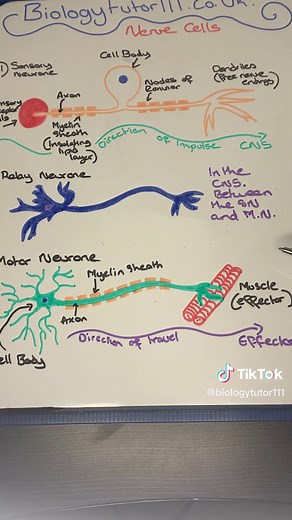 Biologytutor111.co.uk.
Nerve Cells
1) Sensory
neurone
Cell Body
Axon
Nodes of
Ranvier
Dendrites
(Free nerve
endings)
Myelin
sheath
(insulating
lipid
layer)
Direction of Impulse
CNS
Relay Neurone
In the
CNS.
Between
the SN
and M.N.
Motor Neurone
Myelin sheath
Muscle
(effector)
Axon
Cell Body
Direction of travel
Effector
TikTok
@biologytutor111